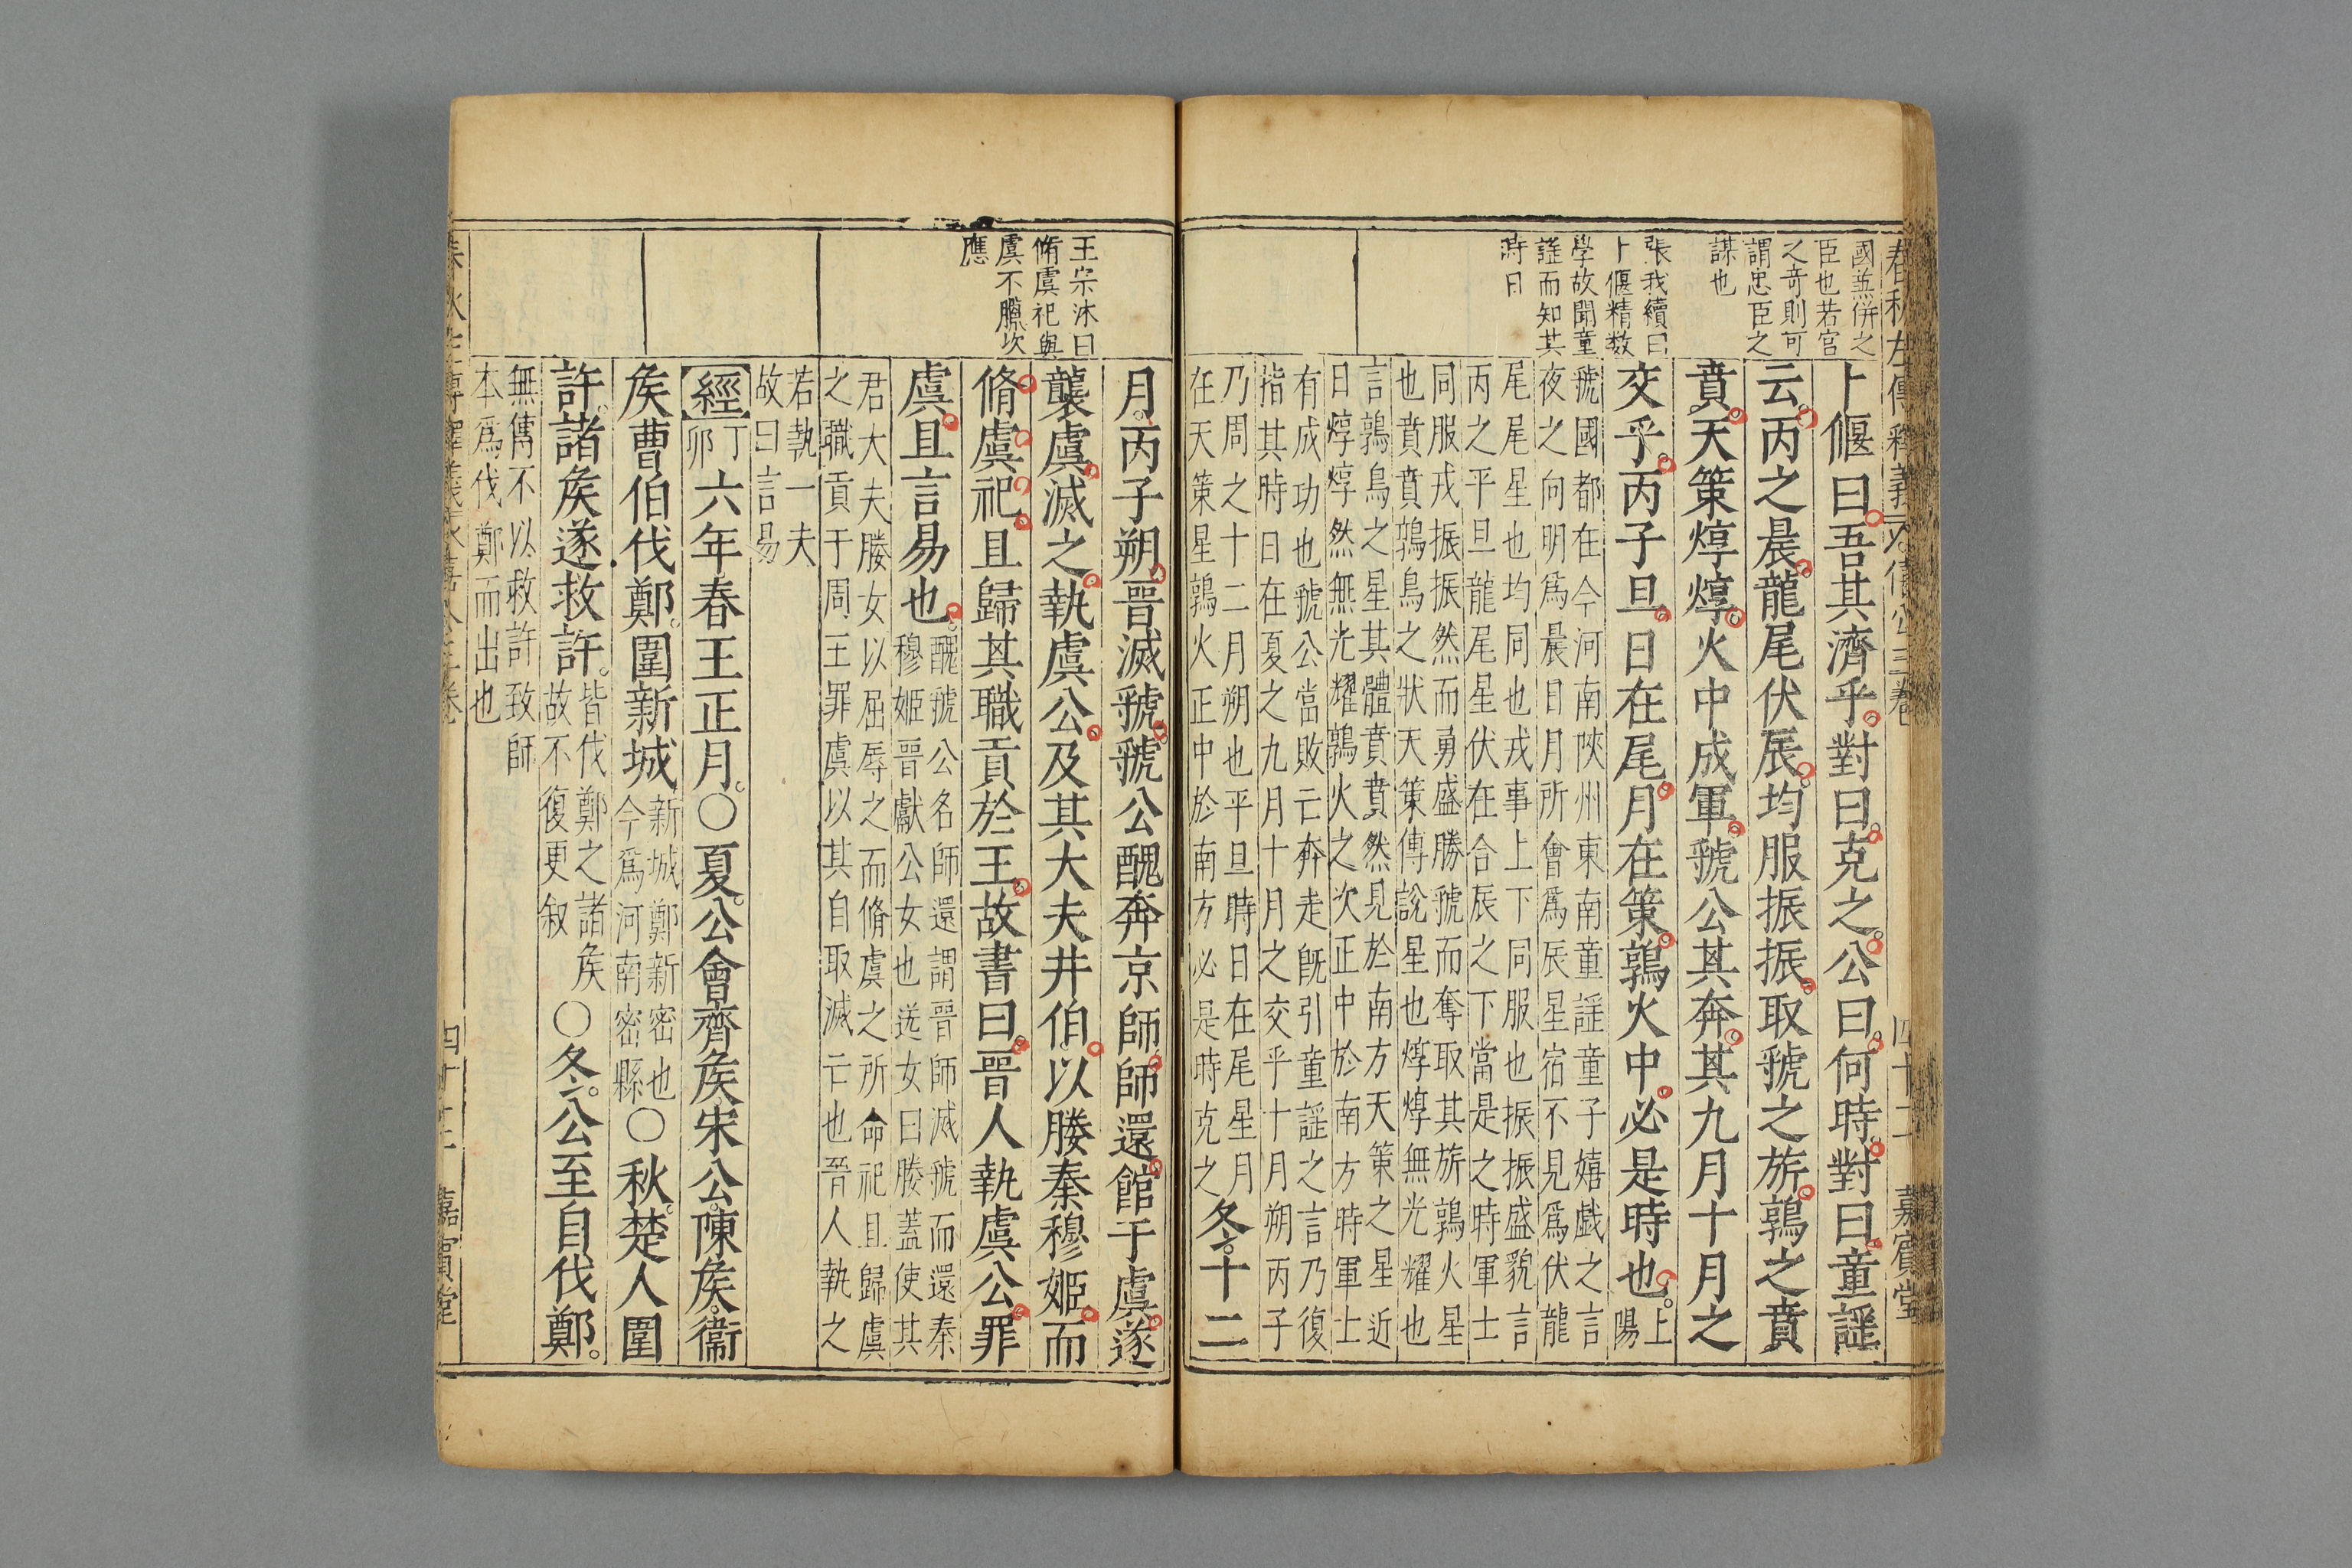 國無併之
臣也若宮
之奇則可
謂忠臣之
謀也
張我續曰
卜偃精数
學故聞童
謡而知其
時日
卜偃曰吾其濟乎對曰克之公曰何時對曰童謡
云丙之晨龍尾伏辰均服振振取虢之旂鶉之賁
賁天策焞焞火中成軍虢公其奔其九月十月之
交乎丙子旦日在尾月在策鶉火中必是時也上
陽
虢國都在今河南陜州東南童謡童子嬉戯之言
夜之向明爲晨日月所會爲辰星宿不見爲伏龍
尾尾星也均同也戎事上下同服也振振盛貌言
丙之平旦龍尾星伏在合辰之下當是之時軍士
同服戎振振然而勇盛勝虢而奪取其旂鶉火星
也賁賁鶉鳥之狀天策傳說星也焞焞無光耀也
言鶉鳥之星其體賁賁然見於南方天策之星近
日焞焞然無光耀鶉火之次正中於南方時軍士
有成功也虢公當敗亡奔走既引童謡之言乃復
指其時日在夏之九月十月之交乎十月朔丙子
乃周之十二月朔也平旦時日在尾星月
在天策星鶉火正中於南方必是時克之
冬十二
四十二 嘉賓堂
王宗沐曰
脩虞祀與
虞不臘坎
應
月丙子朔晉滅虢虢公醜奔京師師還館于虞遂
襲虞滅之執虞公及其大夫井伯以媵秦穆姬而
脩虞祀且歸其職貢於王故書曰晉人執虞公罪
虞且言易也
醜虢公名師還謂晉師滅虢而還秦
穆姬晉獻公女也送女曰媵蓋使其
君大夫媵女以屈辱之而脩虞之所命祀且歸虞
之職貢于周王罪虞以其自取滅亡也晉人執之
若執一夫
故曰言易
經
丁
卯
六年春王正月○夏公會齊矦宋公陳矦衛
矦曹伯伐鄭圍新城
新城鄭新密也
今爲河南密縣
○秋楚人圍
許諸矦遂救許
皆伐鄭之諸矦
故不復更叙
○冬公至自伐鄭
無傳不以救許致師
本爲伐鄭而出也
嘉賓堂